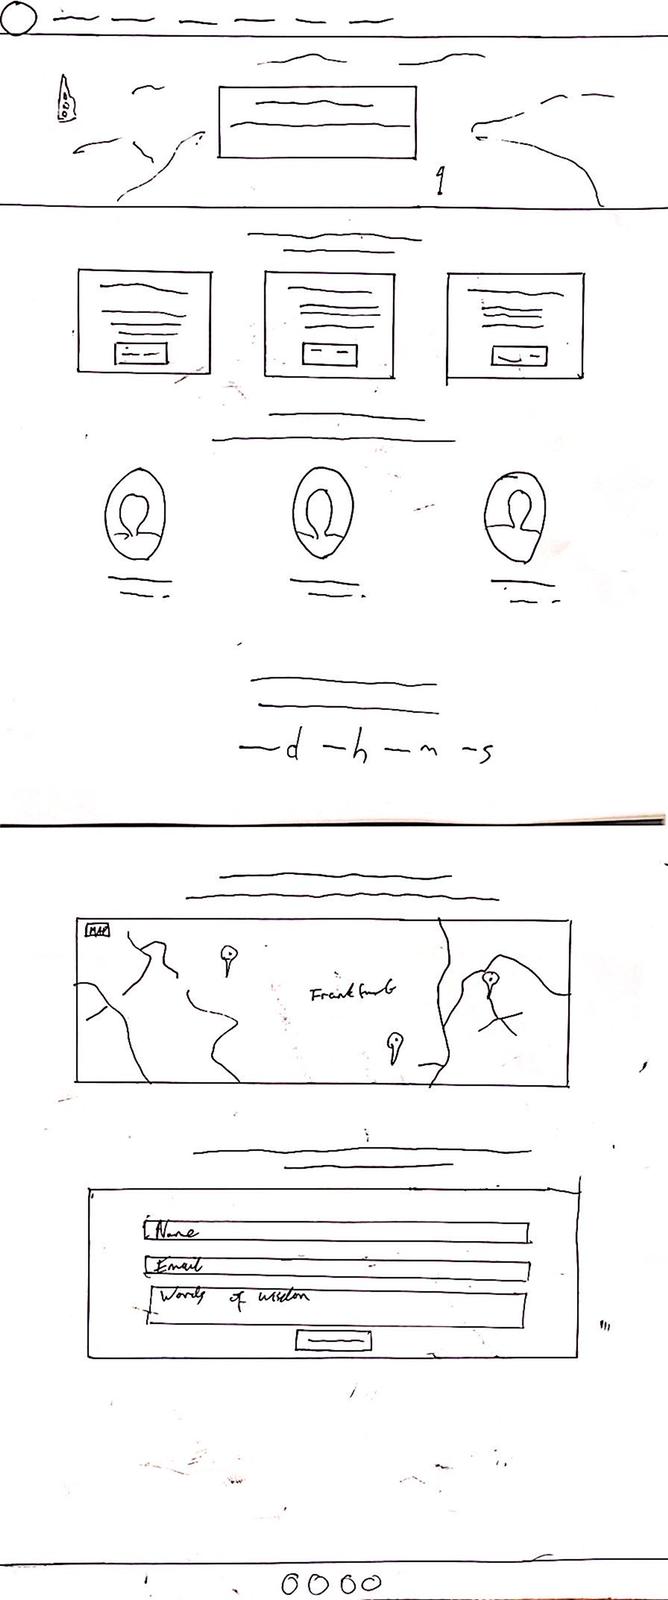 d h m s
MAP
Frankfurt
Name
Email
Words of wisdom